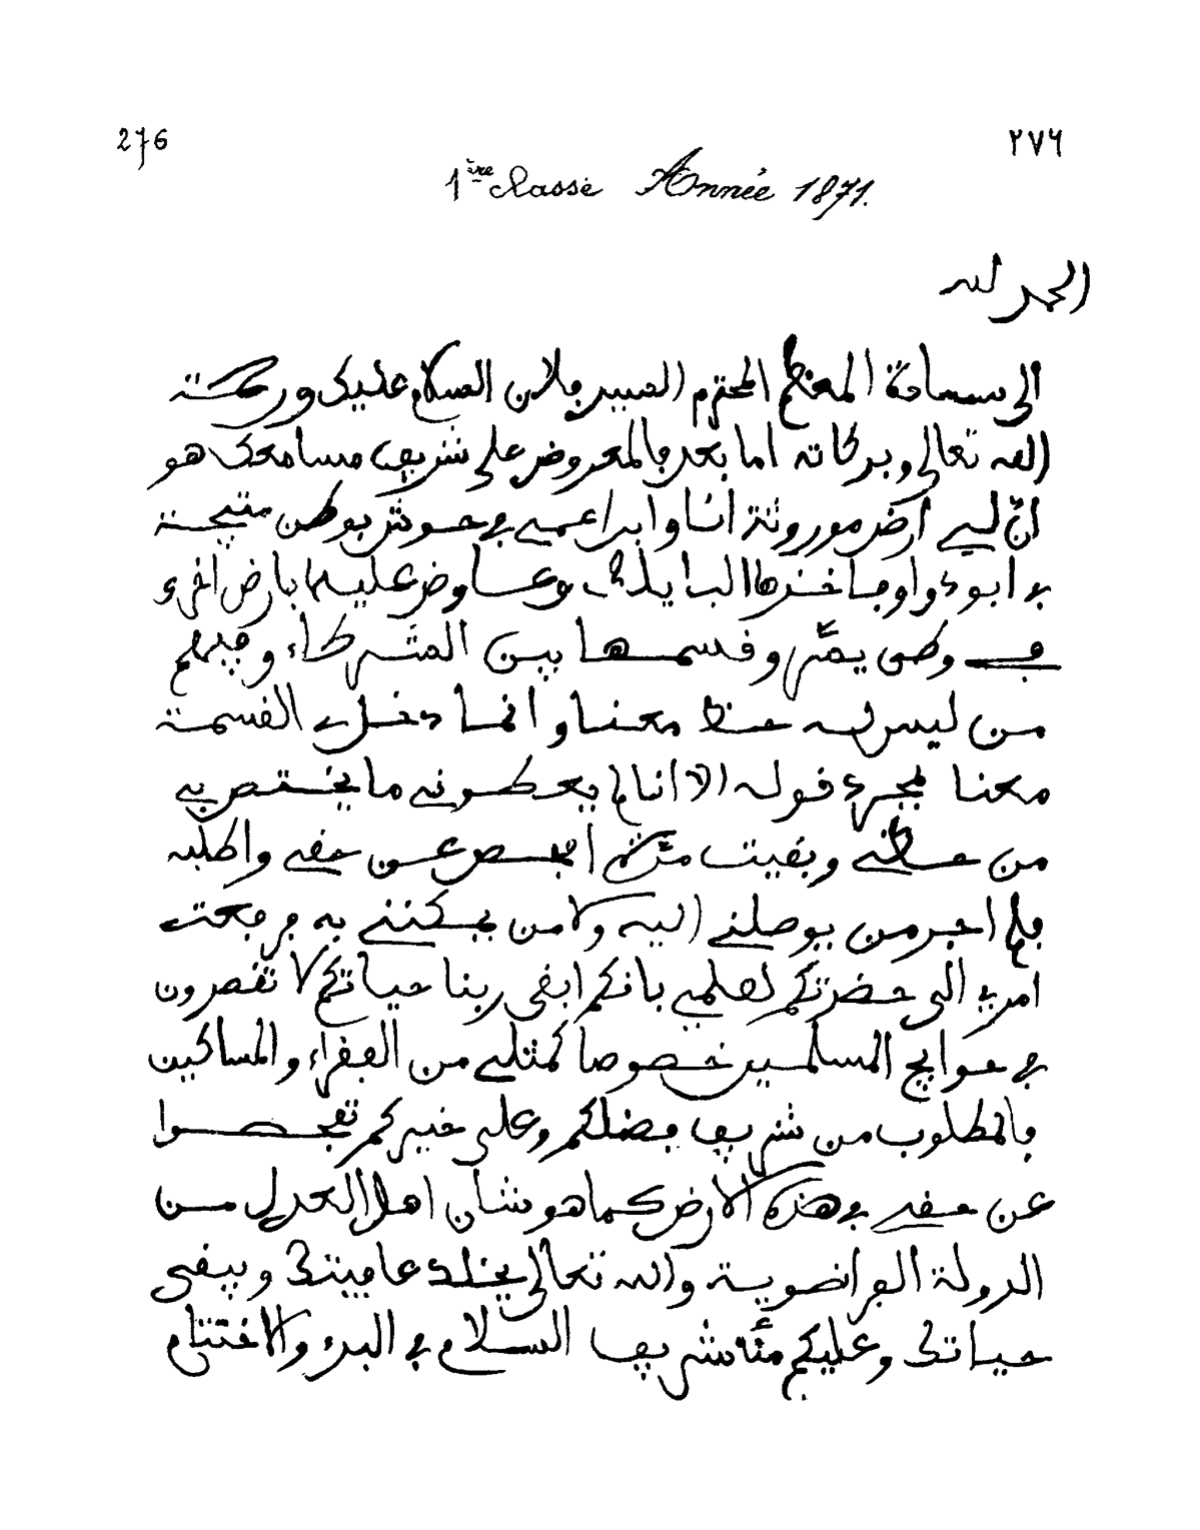 276
٢٧٦
1ère classe Année 1871.
الحمد لله
الى سعادة المعظم المحترم السيد فلان السلام عليك ورحمة
الله تعالى وبركاته اما بعد فالمعروض على شريف مسامعك هو
انّ لي ارض موروثة انا وابن اعمي في حوش بوطن متيجة
في وطن يسّر وقسمها بين الشركاء وفيهم
من ليس له حظ معنا وانما دخل في القسمة
معنا بمجرد قوله الا انا لم يعطوني ما يختص بي
من حظي وبقيت مدّة افحص عن حقي واطلبه
فلم اجد من يوصلني اليه ولا من يمكنني به فرفعت
امري الى حضرتكم لعلمي بانكم ابقى ربنا حياتكم لا تقصرون
في حوايج المسلمين خصوصا كمثلي من الفقراء والمساكين
فالمطلوب من شريف فضلكم وعلى خيركم تفحصوا
عن حقي في هذه الارض كما هو شان اهل العدل من
الدولة الفرانصوية والله تعالى يخلد عافيتك ويبقى
حياتك وعليكم منّا شريف السلام في البدء والاختتام